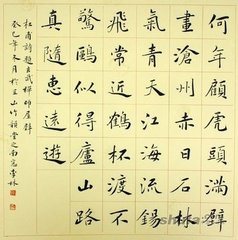 何年顧虎頭滿壁
畫滄州赤日石林
氣青天江海流錫
飛常近鶴杯渡不
驚鷗似得廬山路
真隨惠遠遊
杜甫詩題玄武禪師屋壁
癸巳年冬月於玉山竹韻堂之南窗常林